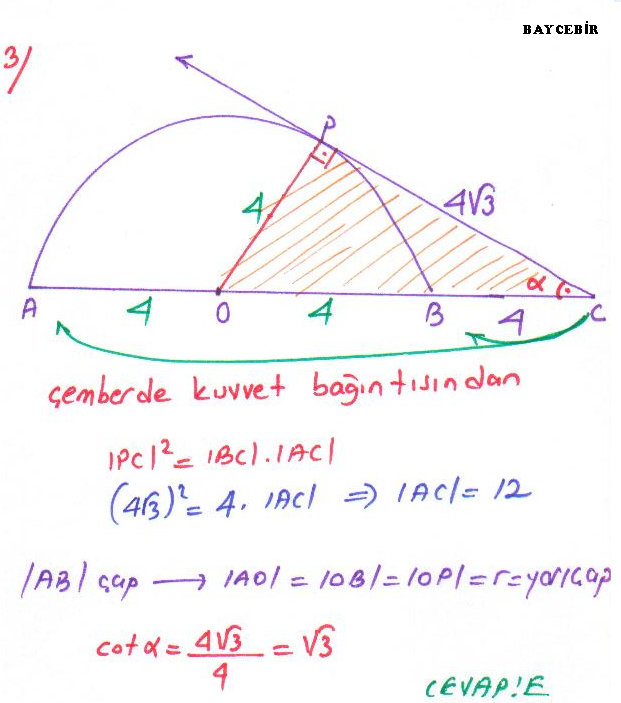 BAYCEBİR
3/
P
4
4√3
α
A
4
O
4
B
4
C
çemberde kuvvet bağıntısından
|PC|² = |BC|.|AC|
(4√3)² = 4. |AC| ⇒ |AC| = 12
|AB| çap → |AO| = |OB| = |OP| = r = yarıçap
cot α = 4√3/4 = √3
CEVAP!E